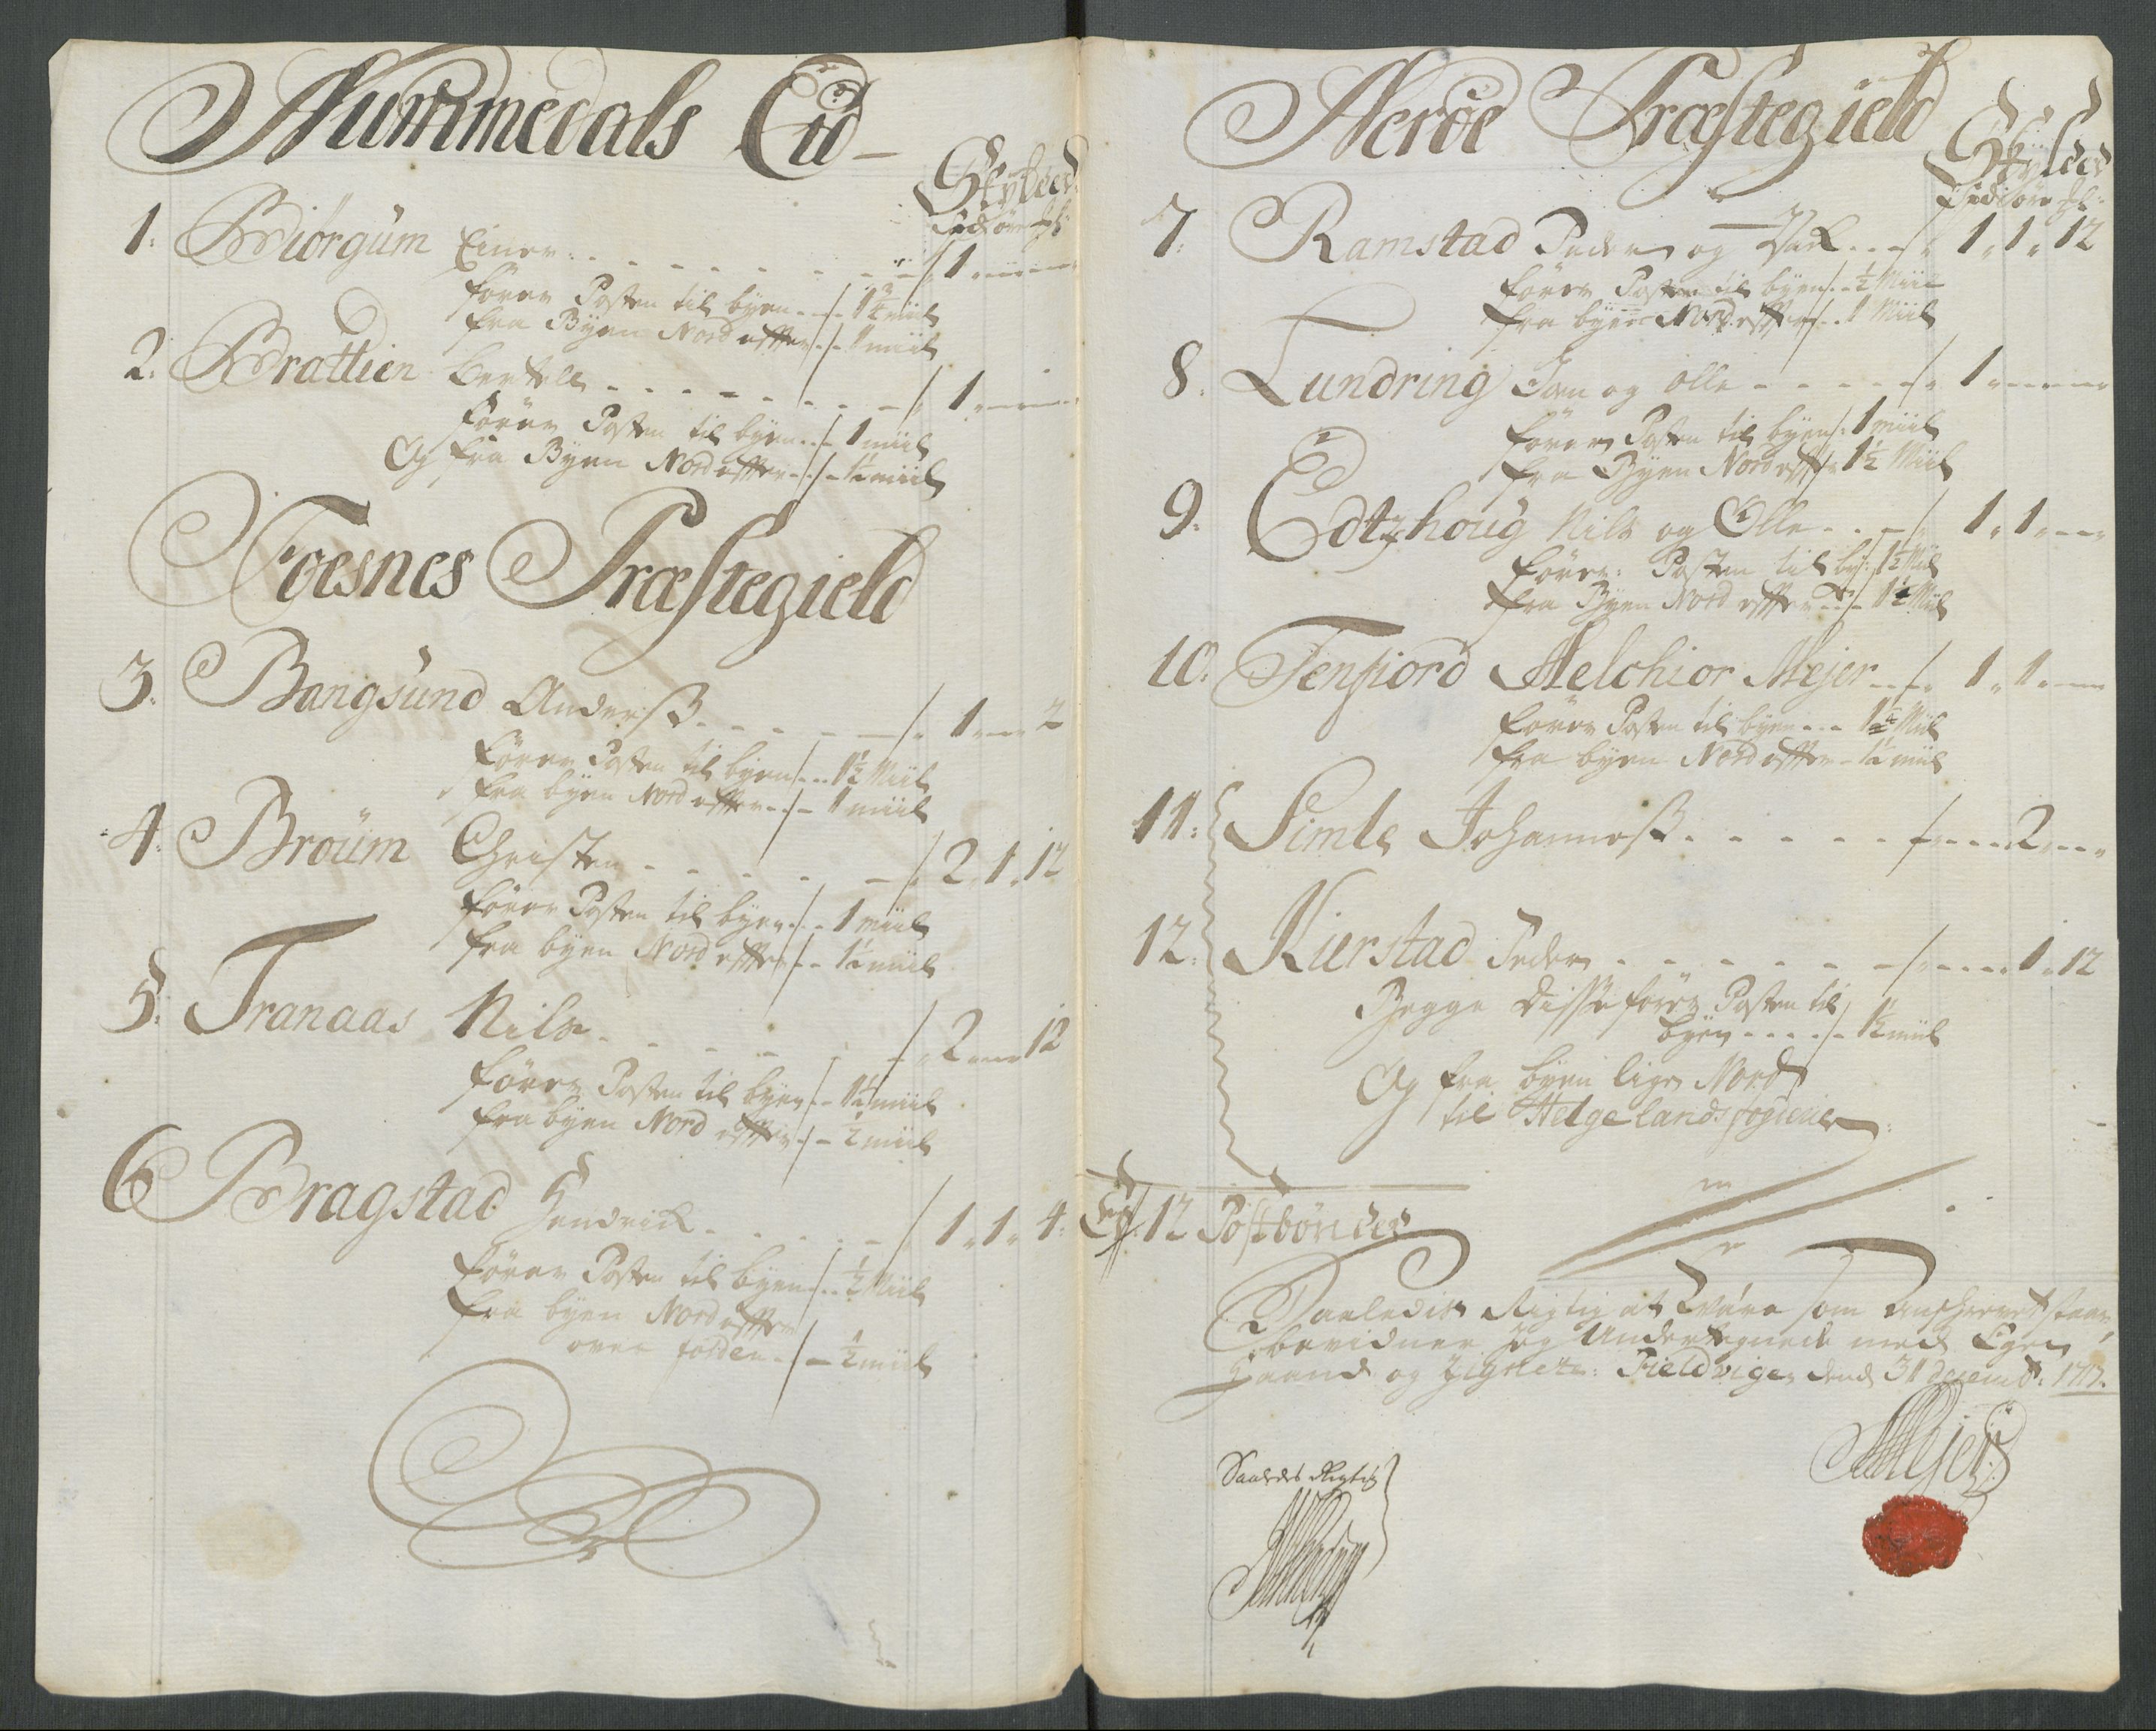 Nummedals Eid
Skylder
1. Biörgüm Einer 1
förer Posten til byen 1¾ miil
fra Byen Nord effter 1 miil
2. Brattlien Bertell 1
förer Posten til byen 1 miil
Og fra Byen Nord effter 1¼ miil
Foesnes Præstegield
3. Bangsund Anderss 1 2
förer Posten til byen 1½ Miil
fra byen Nord effter 1 miil
4. Broüm Christen 2 1 12
förer Posten til byen 1 miil
fra byen Nord effter 1¼ miil
5. Tranaas Nils 2 12
förer Posten til byen 1¼ miil
fra byen Nord effter ½ miil
6 Bragstad Hendrich 1 1 4
förer Posten til byen ½ Miil
fra byen Nord effter
over folden ½ miil
Nerøe Præstegield
Skylder
7. Ramstad Peder og 1 1 12
förer Posten til byen ½ Miil
fra byen Nord effter 1 Miil
8. Lundring Jon og Olle 1
förer Posten til byen 1 miil
fra Byen Nord effter 1½ Miil
9. Edtzhoug Nils og Olle 1 1
förer Posten til by: 1½ Miil
fra Byen Nord effter Miil
10. Tenfiord Melchior Mejer 1 1
förer Posten til byen Miil
fra byen Nord effter 1¼ miil
11. Simle Johanness 2
12. Kierstad Peder 1 12
Begge disse förer Posten til
byen 1½ miil
Og fra byen lige Nord
til Helgelands fogderie
Er 12 Postbönder
Saaledis Rigtig at Være som anschrevet staar,
bevidner jeg Undertegnede med Egen
Haand og Zignete: Fieldvigen dend 31 decemb: 1717.
Saaledes Rigtig